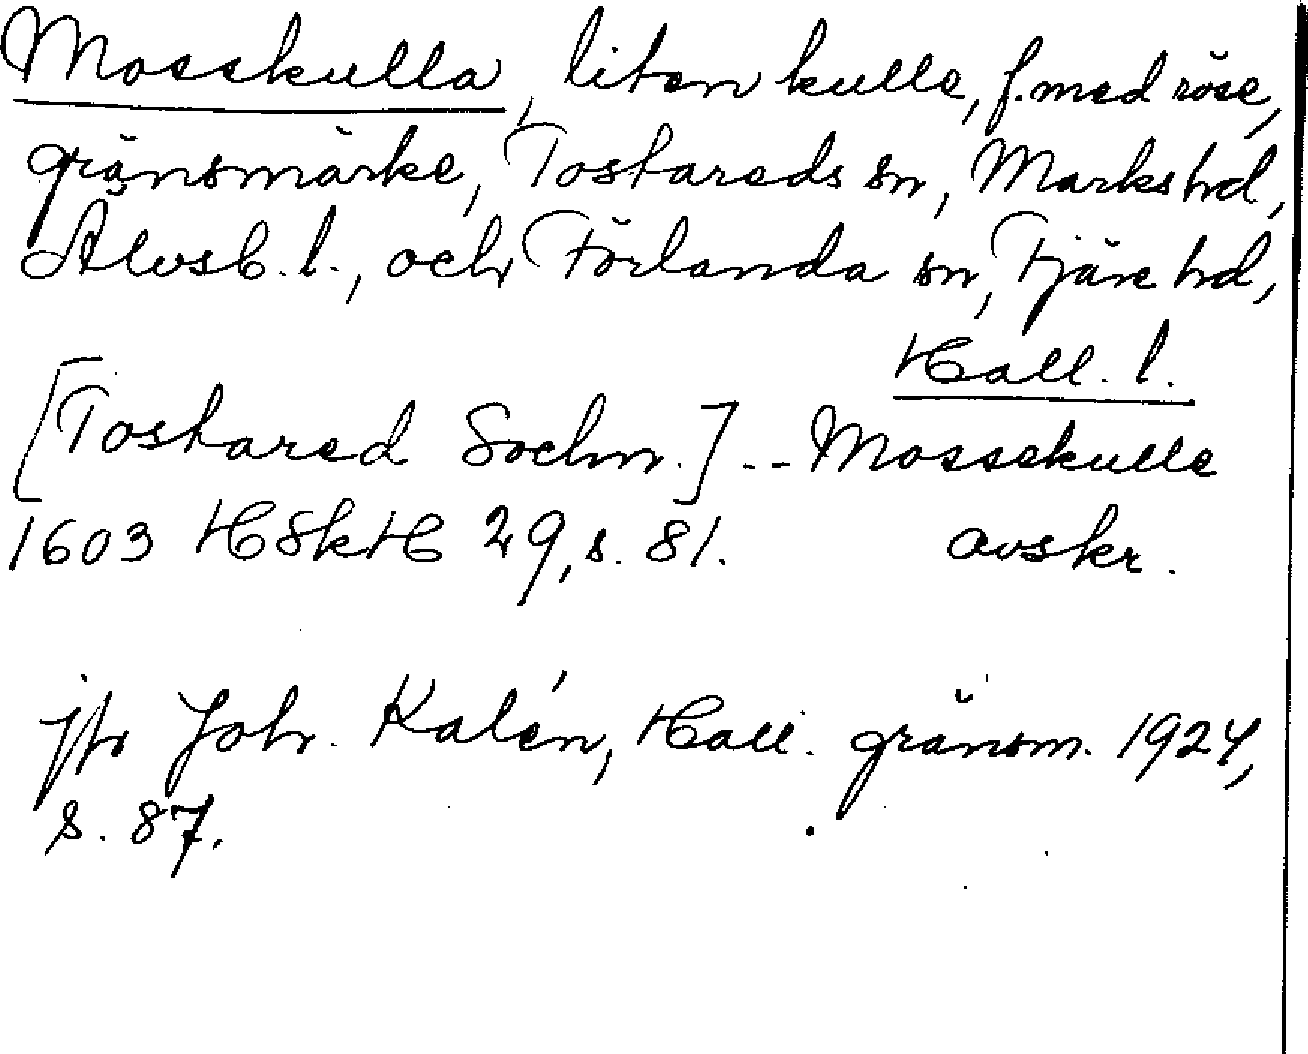 Mosskulla, liten kulle, f. med röse,
gränsmärke, Tostareds sn, Marks hd,
Älvsb. l., och Förlanda sn, Fjäre hd,
Hall. l.
[Tostared Sochn.] -- Mossekulle
1603 HSkH 29, s. 81. avskr.
jfr Joh. Kalén, Hall. gränsm. 1924,
s. 87.